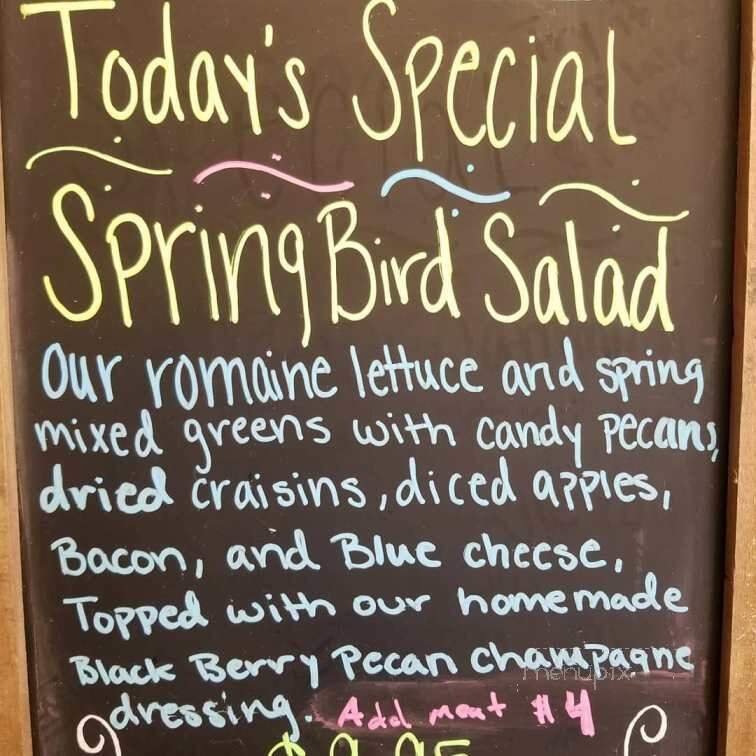 Today's Special
Spring Bird Salad
Our romaine lettuce and spring
mixed greens with candy pecans,
dried craisins, diced apples,
Bacon, and Blue cheese,
Topped with our homemade
Black Berry Pecan Champagne
menupix
dressing. Add meat #4